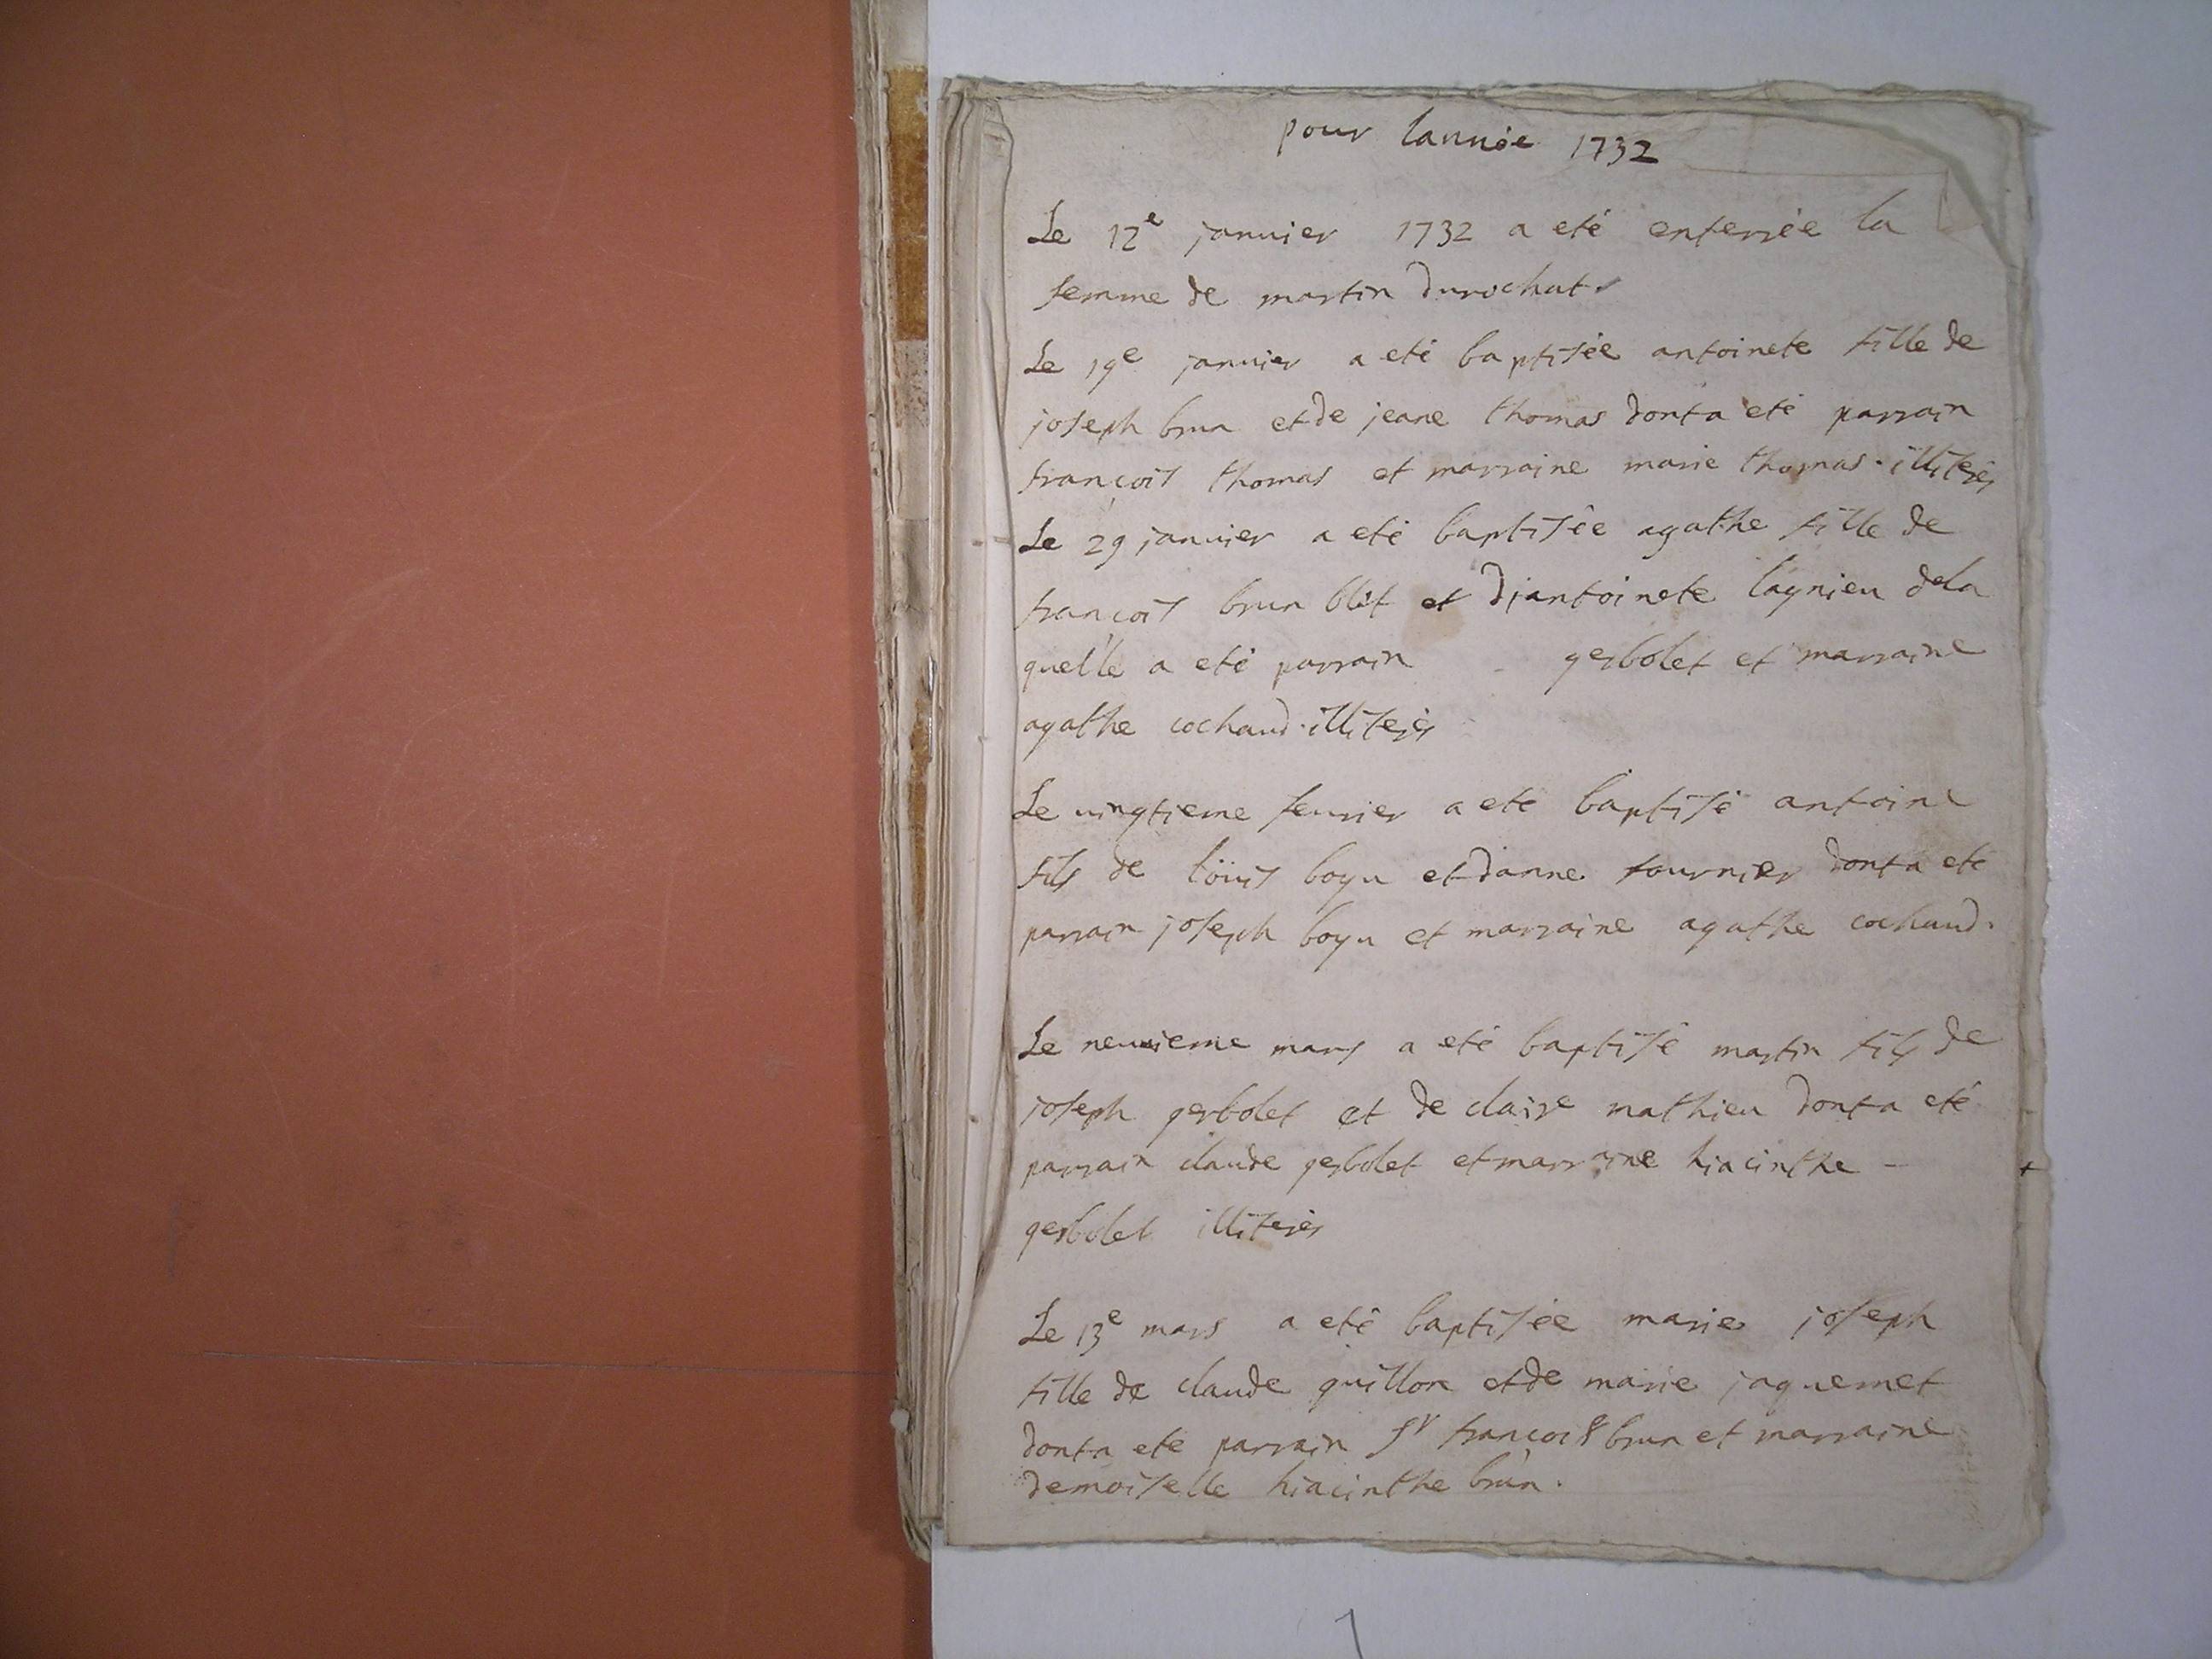 pour lannée 1732
Le 12e januier 1732 a eté enterrée la
femme de martin durochat.
Le 19e januier a eté baptisée antoinete fille de
joseph brun et de jeane thomas dont a eté parrain
françois thomas et marraine marie thomas. illiterés
Le 29 januier a eté baptisée agathe fille de
françois brun blet et dantoinete lagnieu dela
quelle a eté parrain gerbolet et marraine
agathe cochaud. illiterés
Le uingtieme feurier a eté baptisé antoine
fils de loüis boyu et danne fournier dont a eté
parrain joseph boyu et marraine agathe cochaud.
Le neuuieme mars a eté baptisé martin fils de
joseph gerbolet et de claire mathieu dont a eté
parrain claude gerbolet et marraine hiacinthe -
gerbolet illiterés
Le 13e mars a eté baptisée marie joseph
fille de claude guillon et de marie jaquemet
dont a eté parrain sr françois brun et marraine
demoiselle hiacinthe brun.
1